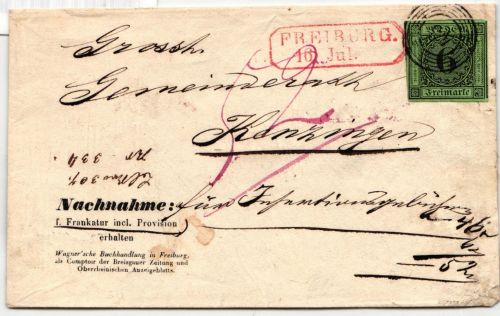 FREIBURG.
10. Jul.
6
Freimarke
Grossh.
Gemeinderath
Kenzingen
No 334
Nachnahme: für Insertionsgebühren
f. Frankatur incl. Provision
erhalten
46
6
52
Wagner'sche Buchhandlung in Freiburg,
als Comptoir der Breisgauer Zeitung und
Oberrheinischen Anzeigeblatts.